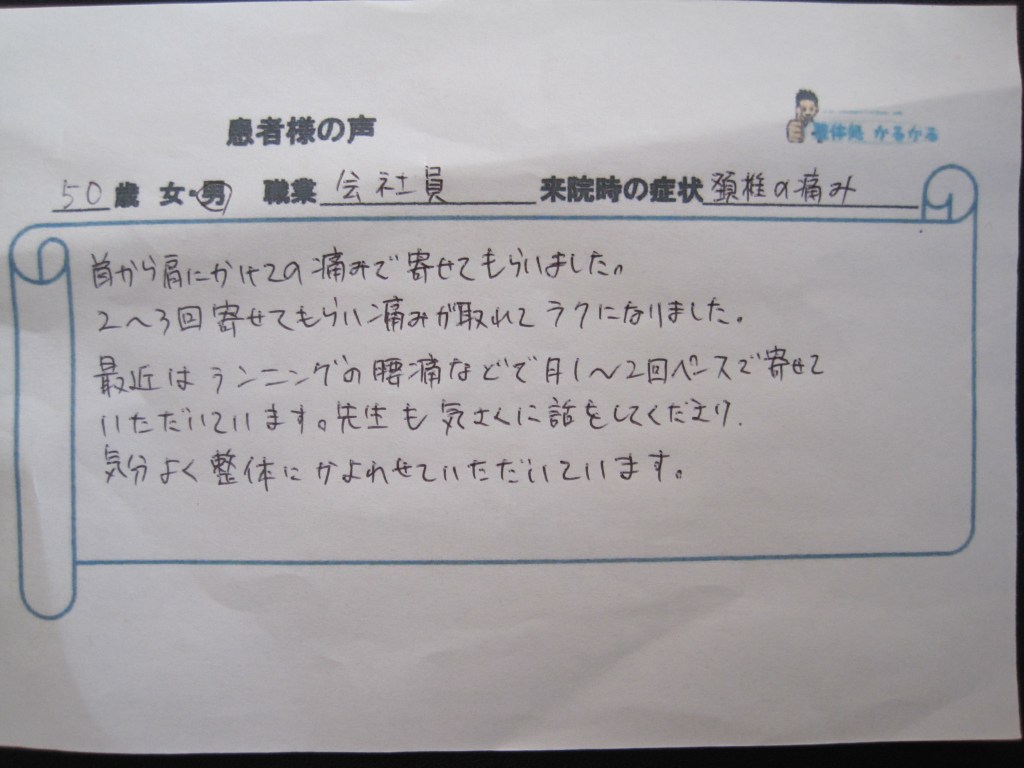 患者様の声
整体処 かるかる
50歳 女・男 職業 会社員 来院時の症状 頚椎の痛み
首から肩にかけての痛みで寄せてもらいました。
2〜3回寄せてもらい痛みが取れてラクになりました。
最近はランニングの腰痛などで月1〜2回ペースで寄せて
いただいています。先生も気さくに話をしてくださり、
気分よく整体にかよわせていただいています。